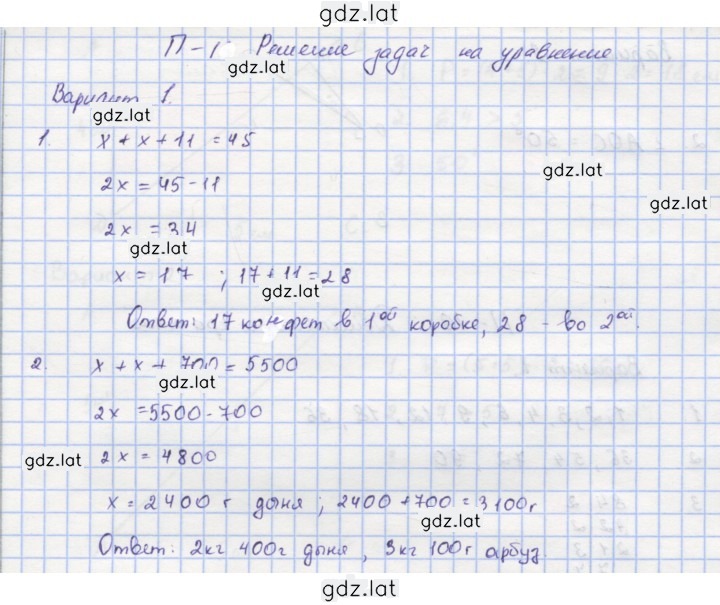 gdz.lat
П-1 Решение задач на уравнение
gdz.lat
Вариант 1.
gdz.lat
1. x + x + 11 = 45
gdz.lat
2x = 45 - 11
gdz.lat
2x = 34
gdz.lat
x = 17 ; 17 + 11 = 28
gdz.lat
Ответ: 17 конфет в 1ой коробке, 28 - во 2ой.
2. x + x + 700 = 5500
gdz.lat
2x = 5500 - 700
gdz.lat 2x = 4800
x = 2400 г дыня ; 2400 + 700 = 3100г
gdz.lat
Ответ: 2кг 400г дыня, 3кг 100г арбуз.
gdz.lat